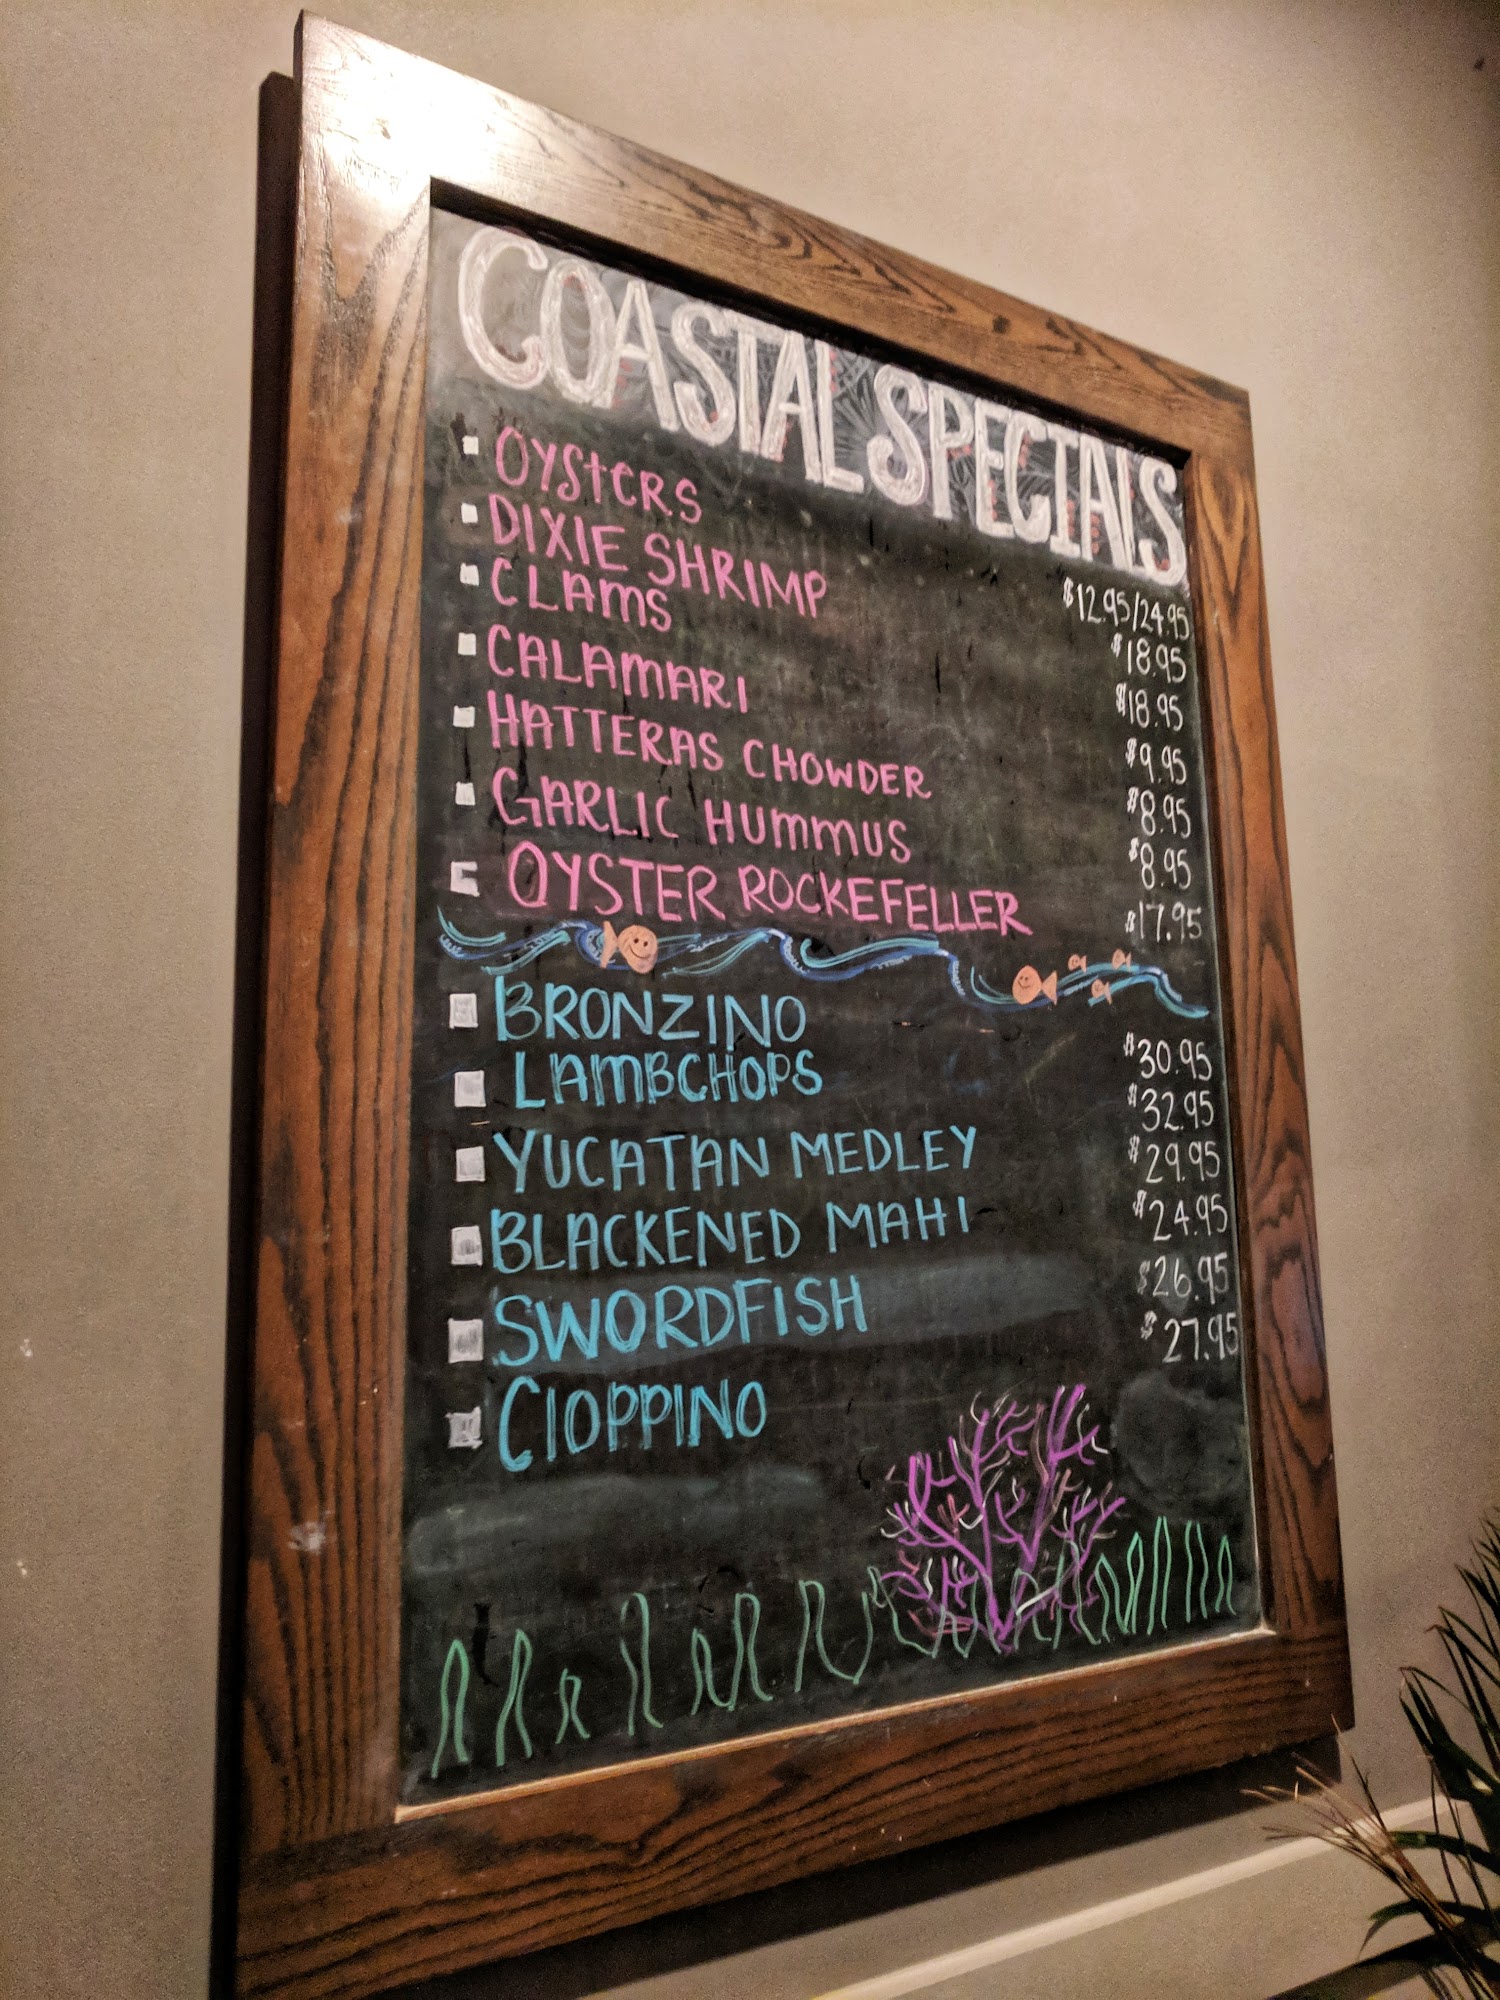 COASTAL SPECIALS
OYSTERS $12.95/24.95
DIXIE SHRIMP $18.95
CLAMS $18.95
CALAMARI $9.95
HATTERAS CHOWDER $8.95
GARLIC HUMMUS $8.95
OYSTER ROCKEFELLER $17.95
BRONZINO $30.95
LAMBCHOPS $32.95
YUCATAN MEDLEY $29.95
BLACKENED MAHI $24.95
SWORDFISH $26.95
CIOPPINO $27.95